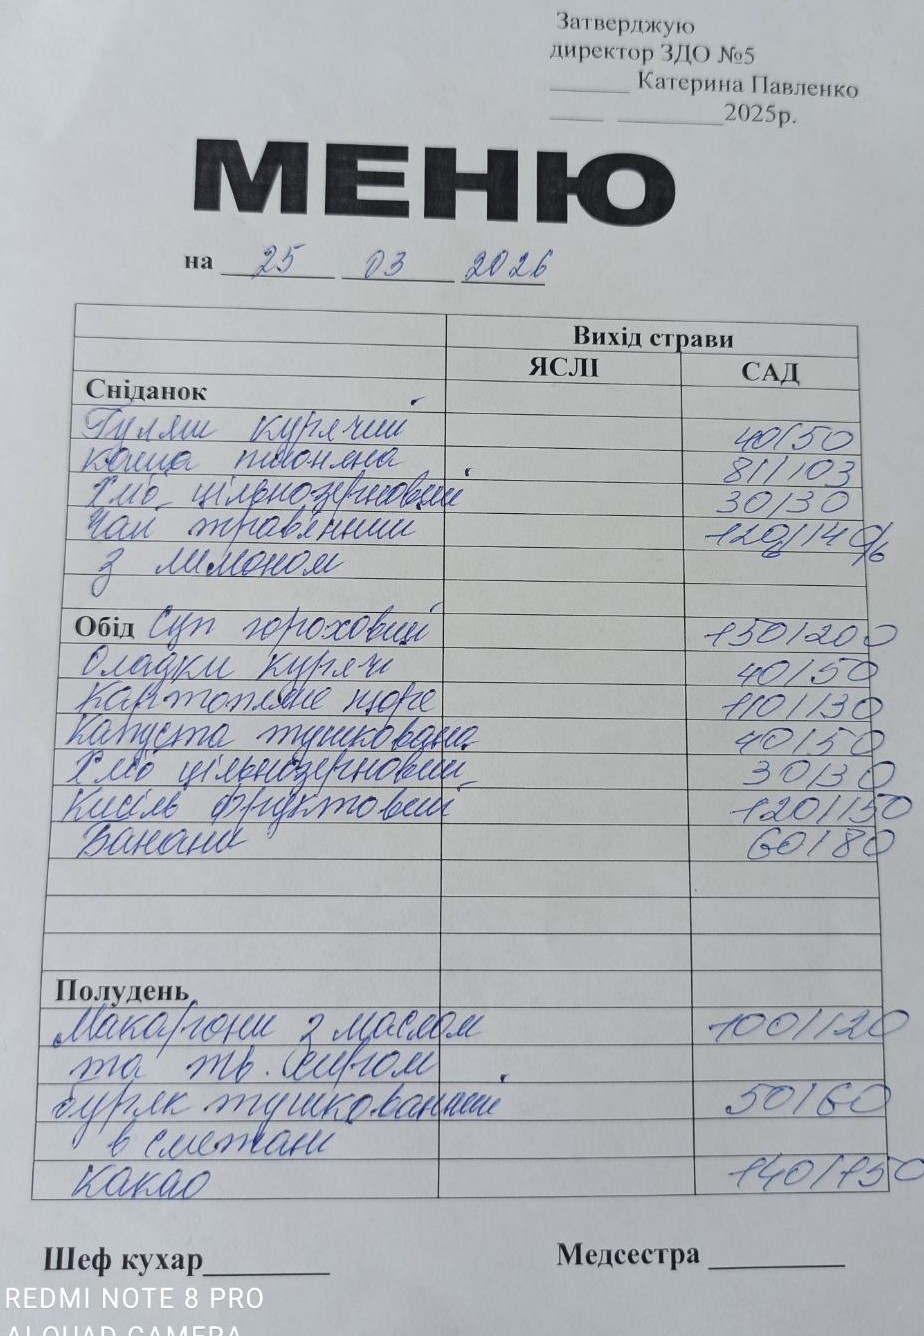 Затверджую
директор ЗДО №5
______ Катерина Павленко
____ ________2025р.
МЕНЮ
на 25 03 2026
Вихід страви
ЯСЛІ САД
Сніданок
Гуляш курячий 40/50
каша пшоняна 81/103
Хліб цільнозерновий 30/30
Чай трав'яний 120/140/6
з лимоном
Обід Суп гороховий 150/200
Оладки курячі 40/50
Картопляне пюре 110/130
Капуста тушкована 40/50
Хліб цільнозерновий 30/30
Кисіль фруктовий 120/150
Банани 60/80
Полудень
Макарони з маслом 100/120
та тв. сиром
буряк тушкованний 50/60
в сметані
Какао 140/150
Шеф кухар________ Медсестра ________
REDMI NOTE 8 PRO
AI QUAD CAMERA